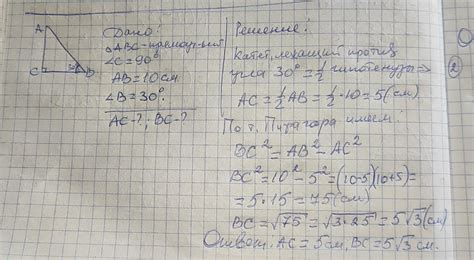 A
C
30°
B
Дано:
△ABC-прямоуг-ник
∠C=90°
AB=10см
∠B=30°.
AC-?; BC-?
Решение:
Катет, лежащий против
угла 30°=1/2 гипотенузы ⇒
AC=1/2AB=1/2·10=5(см)
По т. Пифагора имеем.
BC²=AB²-AC²
BC²=10²-5²=(10-5)(10+5)=
=5·15=75(см)
BC=√75=√3·25=5√3(см)
Ответ: AC=5см, BC=5√3 см.
2